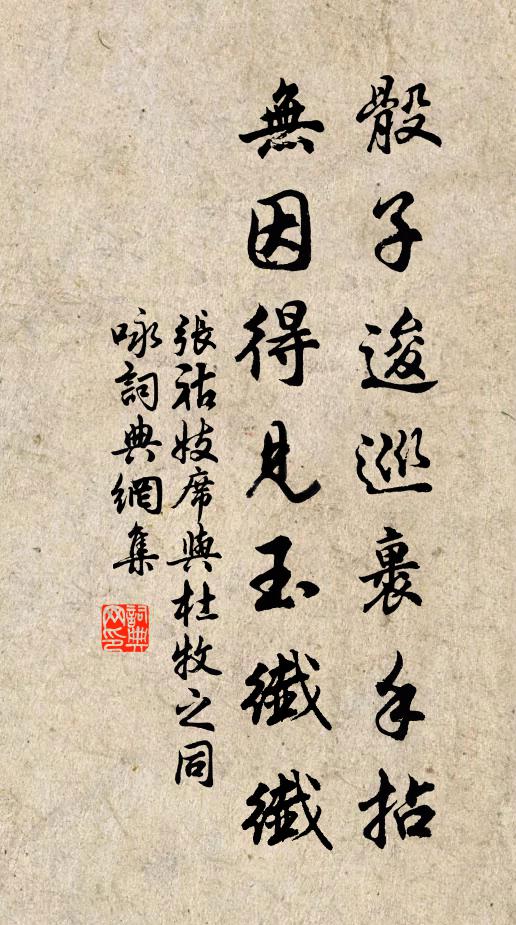 骰子逡巡裹手拈
無因得見玉纖纖
張祜妓席與杜牧之同
咏詞典網集
詞典網印